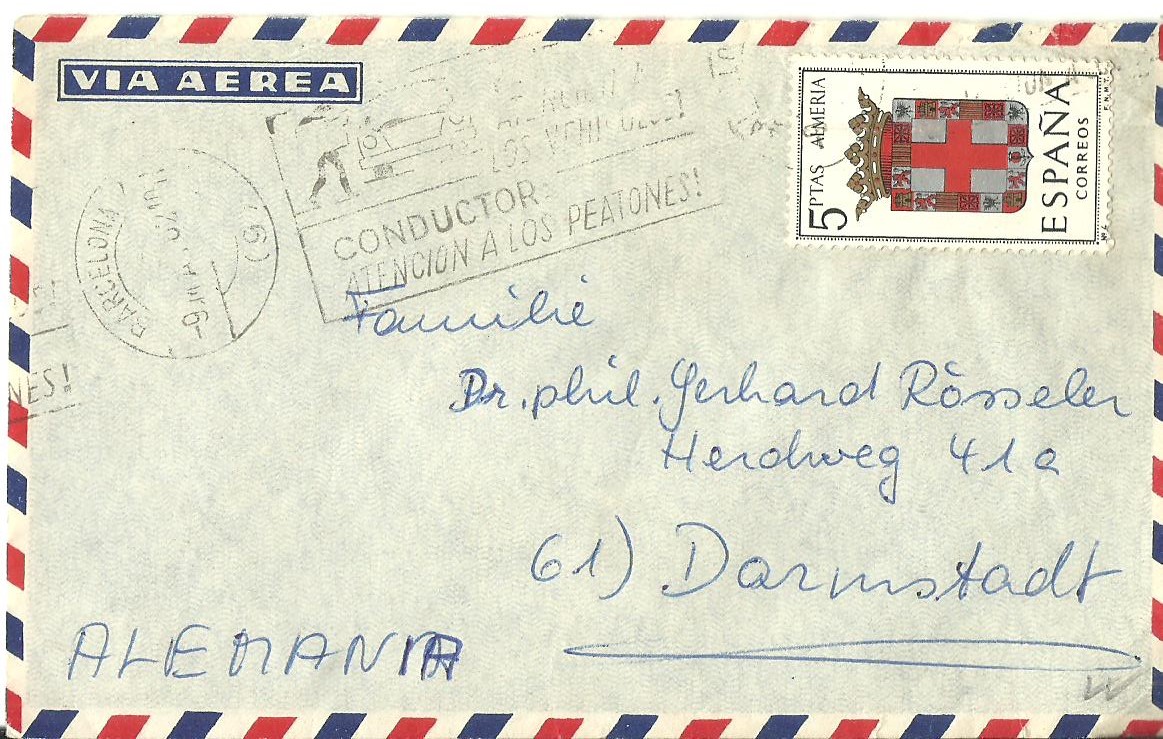 VIA AEREA
5 PTAS ALMERIA
ESPAÑA
CORREOS
Nº 4
F.N.M.T.
BARCELONA
(6)
LOS VEHICULOS!
CONDUCTOR
ATENCION A LOS PEATONES!
NES!
Familie
Dr. phil. Gerhard Rösseler
Herdweg 41a
61) Darmstadt
ALEMANIA